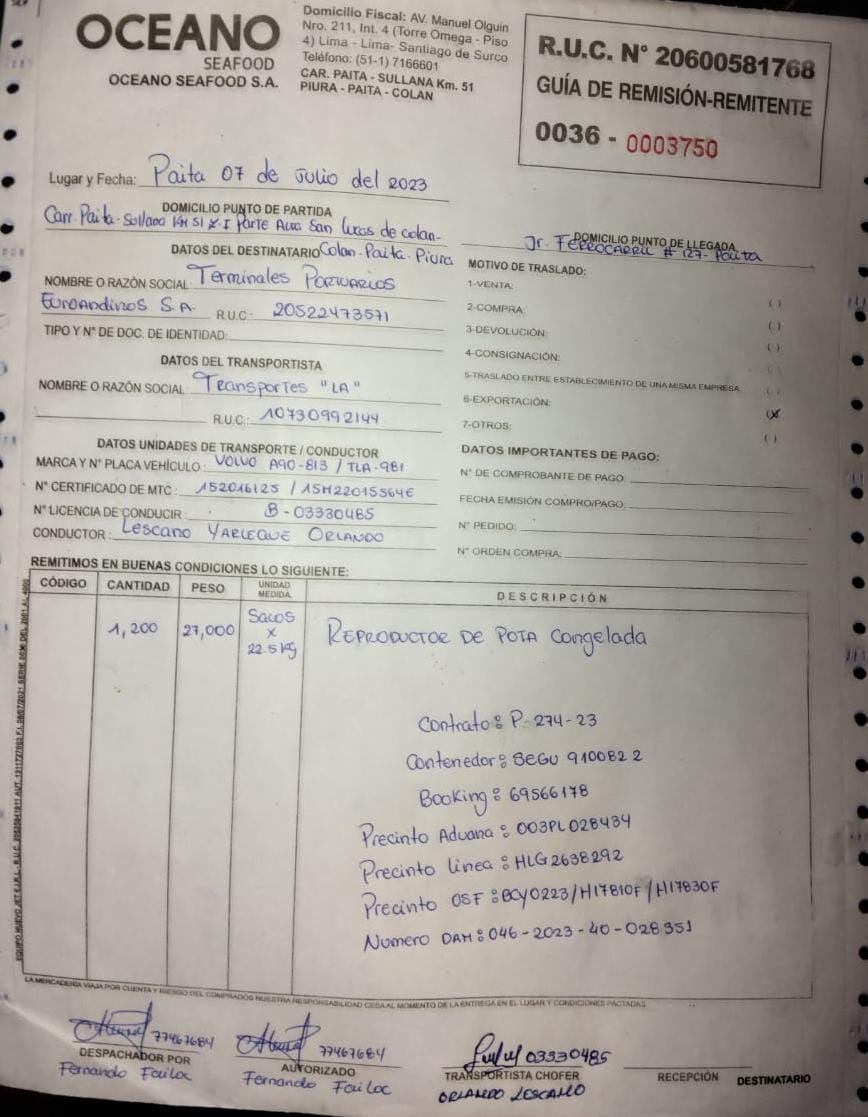 OCEANO
SEAFOOD
OCEANO SEAFOOD S.A.
Domicilio Fiscal: AV. Manuel Olguin
Nro. 211, Int. 4 (Torre Omega - Piso
4) Lima - Lima- Santiago de Surco
Teléfono: (51-1) 7166601
CAR. PAITA - SULLANA Km. 51
PIURA - PAITA - COLAN
R.U.C. N° 20600581768
GUÍA DE REMISIÓN-REMITENTE
0036 - 0003750
Lugar y Fecha: Paita 07 de Julio del 2023
DOMICILIO PUNTO DE PARTIDA
Carr. Paita-Sullana KM 51 Z.I Parte Alta San Lucas de colan-
Colan-Paita-Piura
DOMICILIO PUNTO DE LLEGADA
Jr. FERROCARRIL # 127- Paita
DATOS DEL DESTINATARIO
NOMBRE O RAZÓN SOCIAL Terminales Portuarios
Euroandinos S.A. R.U.C.: 20522473571
TIPO Y N° DE DOC. DE IDENTIDAD:
DATOS DEL TRANSPORTISTA
NOMBRE O RAZÓN SOCIAL Transportes "LA"
R.U.C.: 10730992144
DATOS UNIDADES DE TRANSPORTE / CONDUCTOR
MARCA Y N° PLACA VEHÍCULO: VOLVO A90-813 / TLA-981
N° CERTIFICADO DE MTC: 152016125 / 15M22015564E
N° LICENCIA DE CONDUCIR: B-03330485
CONDUCTOR: Lescano YARLEQUE ORLANDO
MOTIVO DE TRASLADO:
1-VENTA: ( )
2-COMPRA: ( )
3-DEVOLUCIÓN: ( )
4-CONSIGNACIÓN: ( )
5-TRASLADO ENTRE ESTABLECIMIENTO DE UNA MISMA EMPRESA ( )
6-EXPORTACIÓN: (X)
7-OTROS: ( )
DATOS IMPORTANTES DE PAGO:
N° DE COMPROBANTE DE PAGO:
FECHA EMISIÓN COMPRO/PAGO:
N° PEDIDO:
N° ORDEN COMPRA:
REMITIMOS EN BUENAS CONDICIONES LO SIGUIENTE:
CÓDIGO CANTIDAD PESO UNIDAD MEDIDA DESCRIPCIÓN
1,200 27,000 Sacos x 22.5 kg REPRODUCTOR DE POTA Congelada
Contrato: P-274-23
Contenedor: SEGU 910082 2
Booking: 69566178
Precinto Aduana: 003PL028434
Precinto linea: HLG2638292
Precinto OSF: BCY0223/H17810F/H17830F
Numero DAM: 046-2023-40-028351
LA MERCADERIA VIAJA POR CUENTA Y RIESGO DEL COMPRADOS NUESTRA RESPONSABILIDAD CESA AL MOMENTO DE LA ENTREGA EN EL LUGAR Y CONDICIONES PACTADAS.
77467684
DESPACHADOR POR
Fernando Failoc
77467684
AUTORIZADO
Fernando Failoc
03330485
TRANSPORTISTA CHOFER
ORLANDO LESCANO
RECEPCIÓN DESTINATARIO